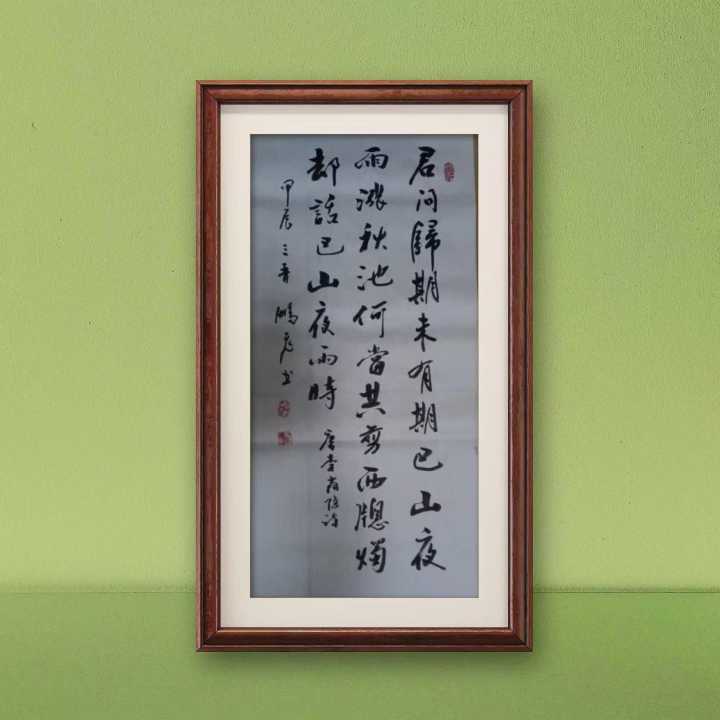 君问歸期未有期巴山夜
雨漲秋池何當共剪西牕燭
却話巴山夜雨時
唐李商隐诗
甲辰 三晋 鹏书